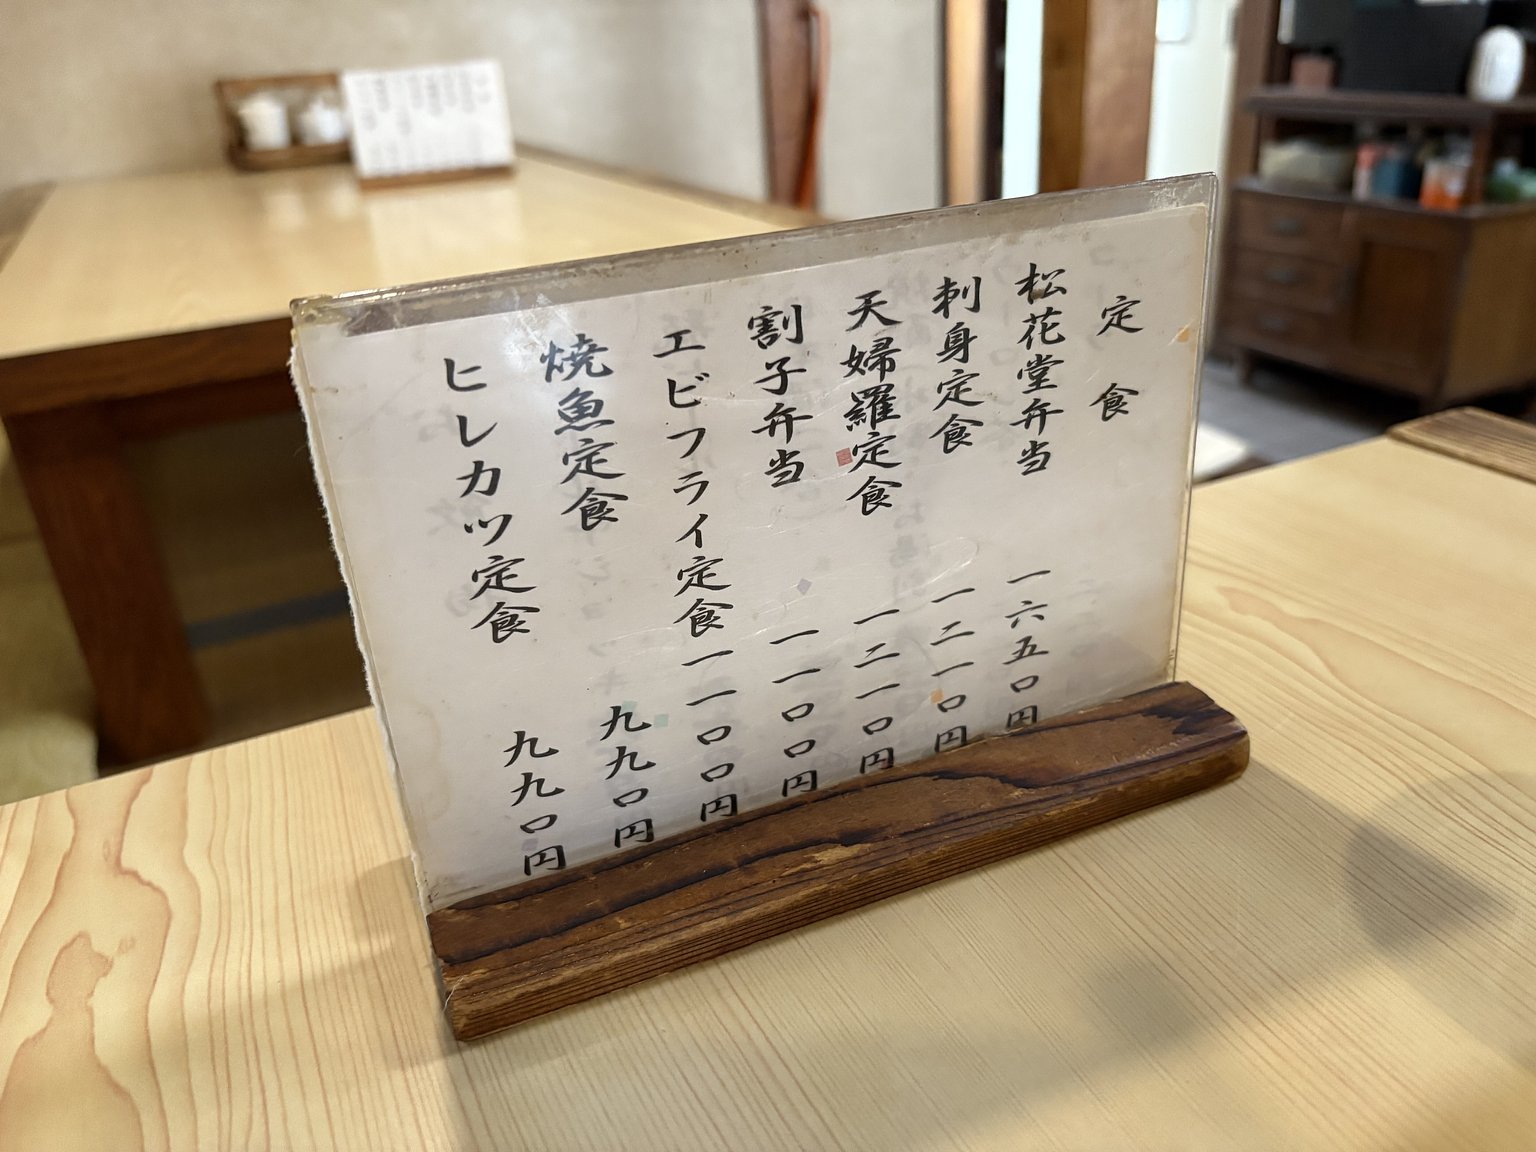 定食
松花堂弁当 一六五〇円
刺身定食 一二一〇円
天婦羅定食 一二一〇円
割子弁当 一一〇〇円
エビフライ定食 一一〇〇円
焼魚定食 九九〇円
ヒレカツ定食 九九〇円